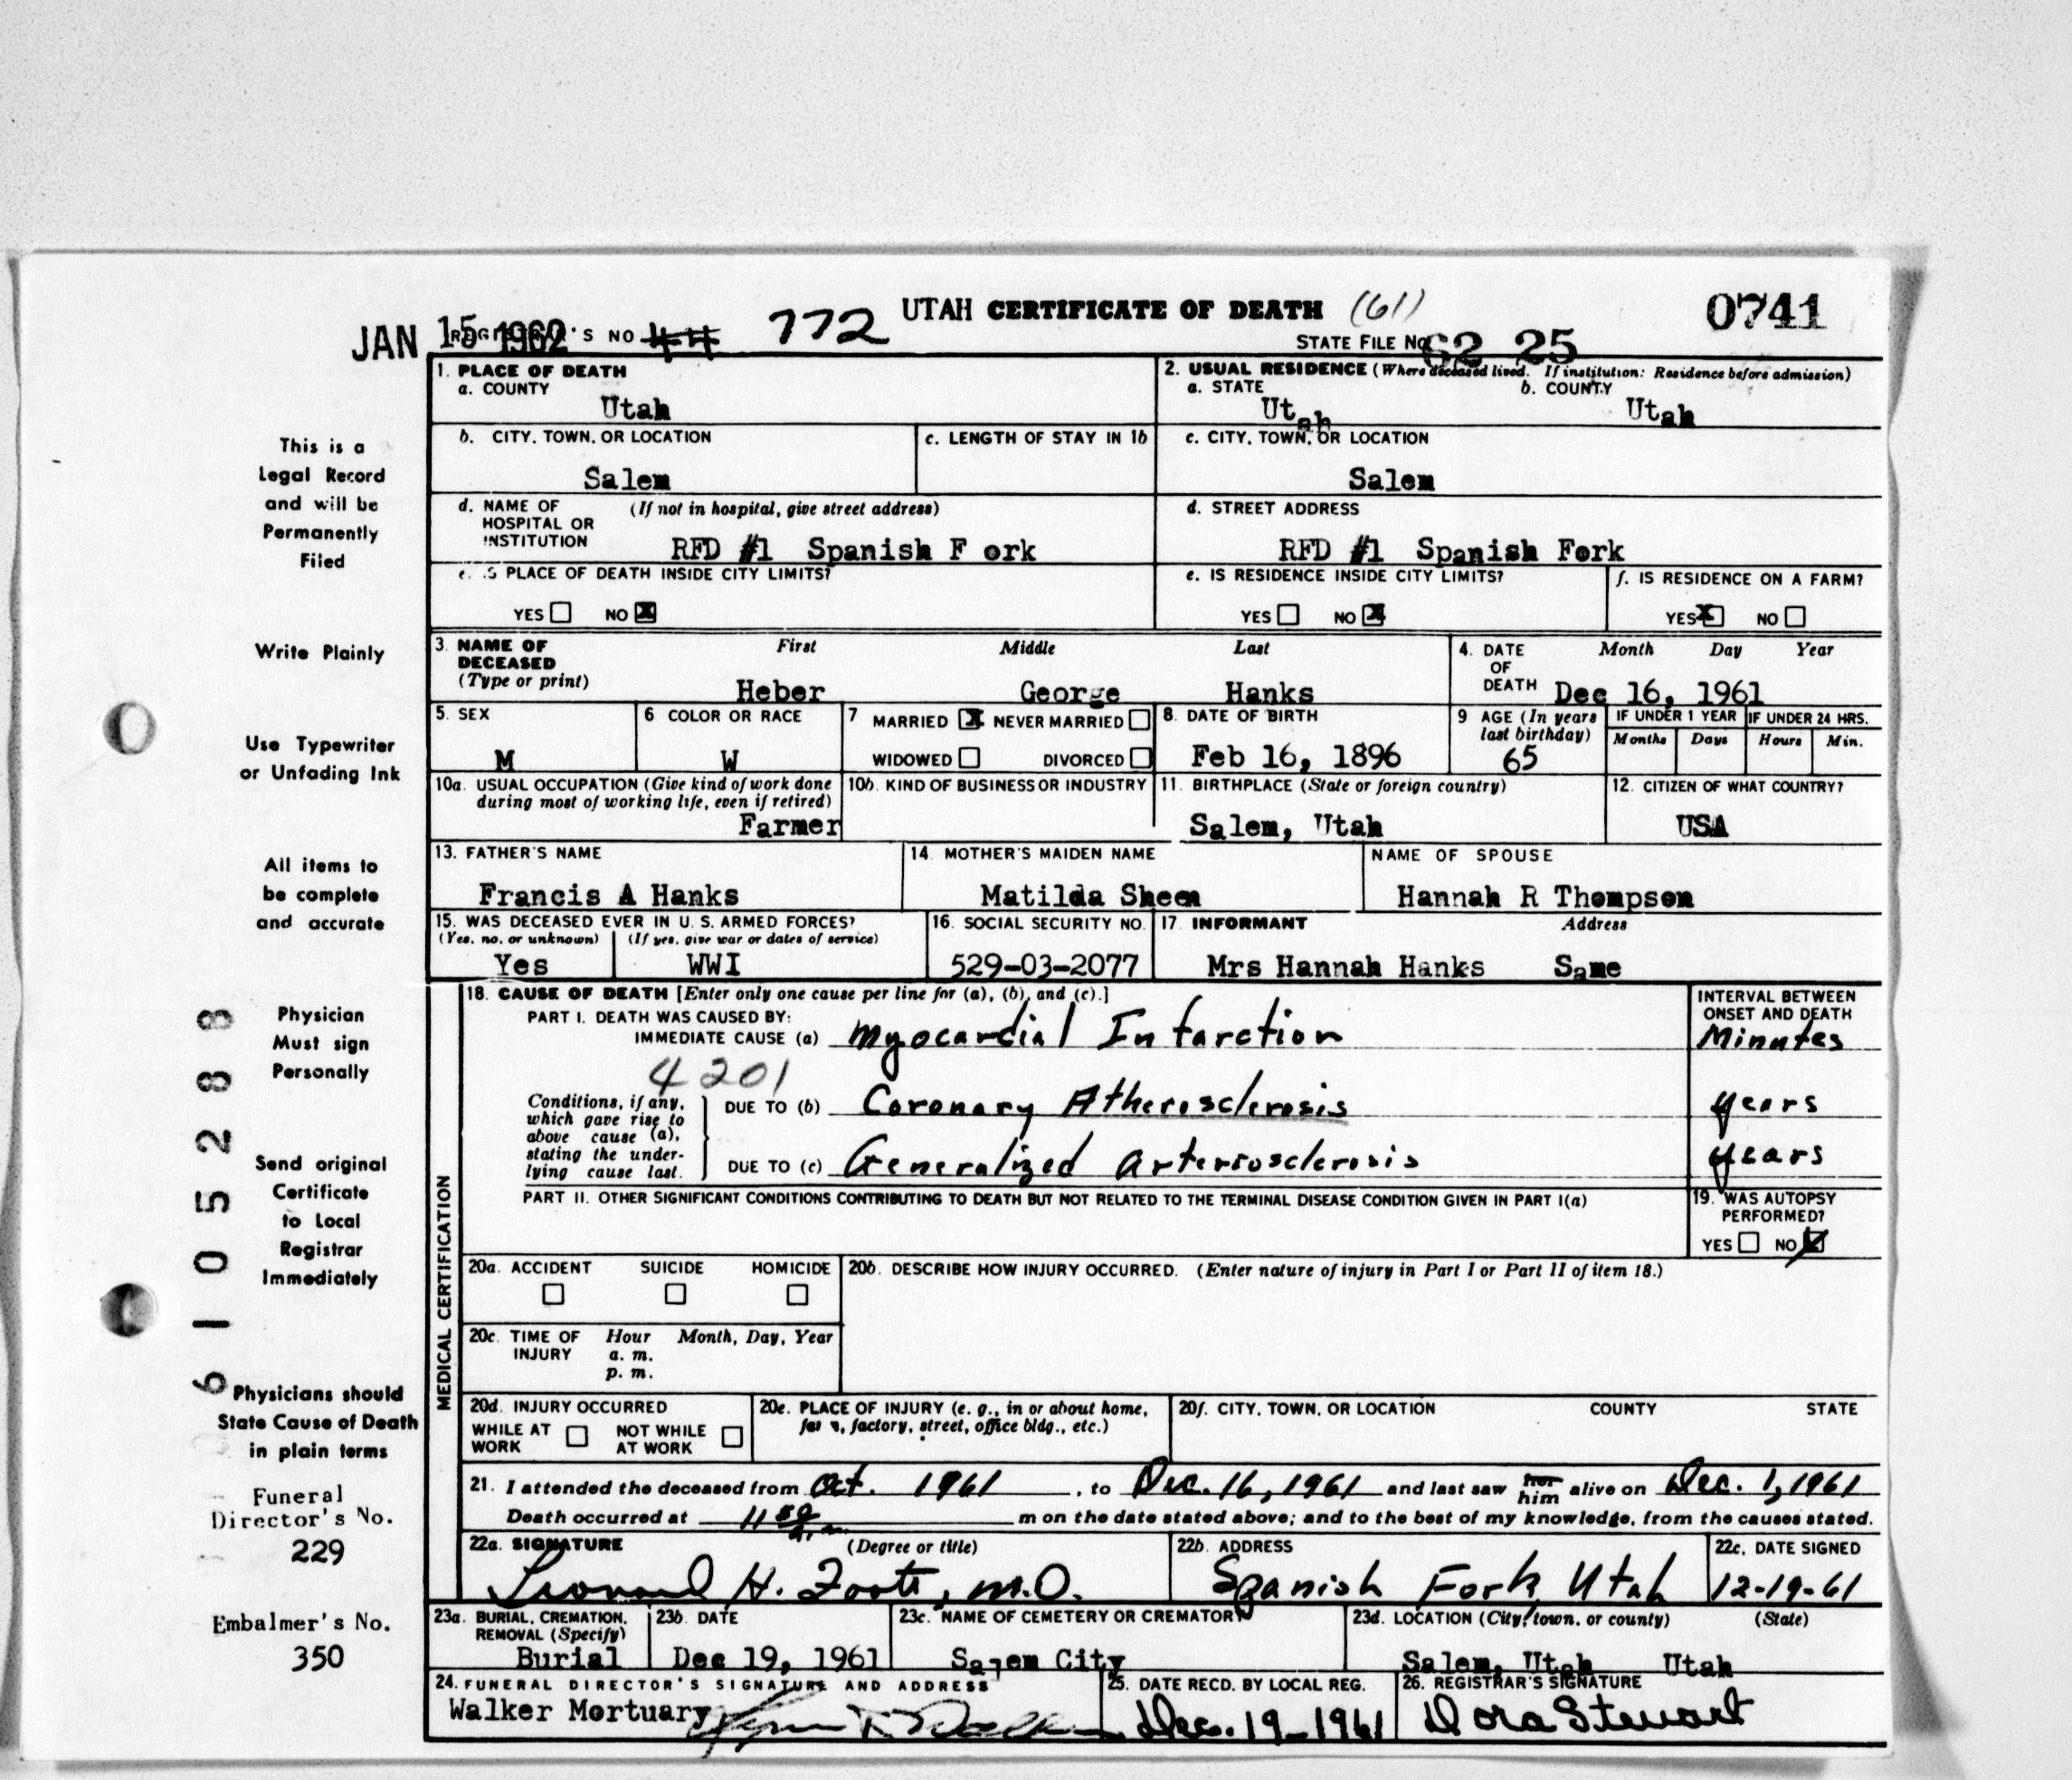 UTAH CERTIFICATE OF DEATH (61) 0741
JAN 15 1962 REGISTRAR'S NO 44 772 STATE FILE NO 62 25
1. PLACE OF DEATH
a. COUNTY
Utah
2. USUAL RESIDENCE (Where deceased lived. If institution: Residence before admission)
a. STATE b. COUNTY
Utah Utah
b. CITY, TOWN, OR LOCATION c. LENGTH OF STAY IN 1b c. CITY, TOWN, OR LOCATION
Salem Salem
d. NAME OF HOSPITAL OR INSTITUTION (If not in hospital, give street address)
RFD #1 Spanish F ork
d. STREET ADDRESS
RFD #1 Spanish Fork
e. IS PLACE OF DEATH INSIDE CITY LIMITS?
YES NO X
e. IS RESIDENCE INSIDE CITY LIMITS?
YES NO X
f. IS RESIDENCE ON A FARM?
YES X NO
3. NAME OF DECEASED (Type or print)
First Middle Last
Heber George Hanks
4. DATE OF DEATH Month Day Year
Dec 16, 1961
5. SEX
M
6 COLOR OR RACE
W
7 MARRIED X NEVER MARRIED
WIDOWED DIVORCED
8. DATE OF BIRTH
Feb 16, 1896
9 AGE (In years last birthday)
65
IF UNDER 1 YEAR IF UNDER 24 HRS.
Months Days Hours Min.
10a. USUAL OCCUPATION (Give kind of work done during most of working life, even if retired)
Farmer
10b. KIND OF BUSINESS OR INDUSTRY
11. BIRTHPLACE (State or foreign country)
Salem, Utah
12. CITIZEN OF WHAT COUNTRY?
USA
13. FATHER'S NAME
Francis A Hanks
14. MOTHER'S MAIDEN NAME
Matilda Sheen
NAME OF SPOUSE
Hannah R Thompson
15. WAS DECEASED EVER IN U. S. ARMED FORCES?
(Yes, no, or unknown) (If yes, give war or dates of service)
Yes WWI
16. SOCIAL SECURITY NO.
529-03-2077
17. INFORMANT Address
Mrs Hannah Hanks Same
MEDICAL CERTIFICATION
18. CAUSE OF DEATH [Enter only one cause per line for (a), (b), and (c).]
INTERVAL BETWEEN ONSET AND DEATH
PART I. DEATH WAS CAUSED BY:
IMMEDIATE CAUSE (a) Myocardial Infarction Minutes
4201
Conditions, if any, which gave rise to above cause (a), stating the underlying cause last.
DUE TO (b) Coronary Atherosclerosis years
DUE TO (c) Generalized Arteriosclerosis years
PART II. OTHER SIGNIFICANT CONDITIONS CONTRIBUTING TO DEATH BUT NOT RELATED TO THE TERMINAL DISEASE CONDITION GIVEN IN PART I(a)
19. WAS AUTOPSY PERFORMED?
YES NO
20a. ACCIDENT SUICIDE HOMICIDE
20b. DESCRIBE HOW INJURY OCCURRED. (Enter nature of injury in Part I or Part II of item 18.)
20c. TIME OF INJURY Hour Month, Day, Year
a. m.
p. m.
20d. INJURY OCCURRED
WHILE AT WORK NOT WHILE AT WORK
20e. PLACE OF INJURY (e. g., in or about home, farm, factory, street, office bldg., etc.)
20f. CITY, TOWN, OR LOCATION COUNTY STATE
21. I attended the deceased from Oct. 1961, to Dec. 16, 1961 and last saw her him alive on Dec. 1, 1961
Death occurred at m on the date stated above; and to the best of my knowledge, from the causes stated.
22a. SIGNATURE (Degree or title)
Leonard H. Foote, M.D.
22b. ADDRESS
Spanish Fork Utah
22c. DATE SIGNED
12-19-61
23a. BURIAL, CREMATION, REMOVAL (Specify)
Burial
23b. DATE
Dec 19, 1961
23c. NAME OF CEMETERY OR CREMATORY
Salem City
23d. LOCATION (City, town, or county) (State)
Salem, Utah Utah
24. FUNERAL DIRECTOR'S SIGNATURE AND ADDRESS
Walker Mortuary
25. DATE RECD. BY LOCAL REG.
Dec. 19-1961
26. REGISTRAR'S SIGNATURE
Dora Stewart
This is a
Legal Record
and will be
Permanently
Filed
Write Plainly
Use Typewriter
or Unfading Ink
All items to
be complete
and accurate
Physician
Must sign
Personally
Send original
Certificate
to Local
Registrar
Immediately
Physicians should
State Cause of Death
in plain terms
Funeral
Director's No.
229
Embalmer's No.
350
61 05288